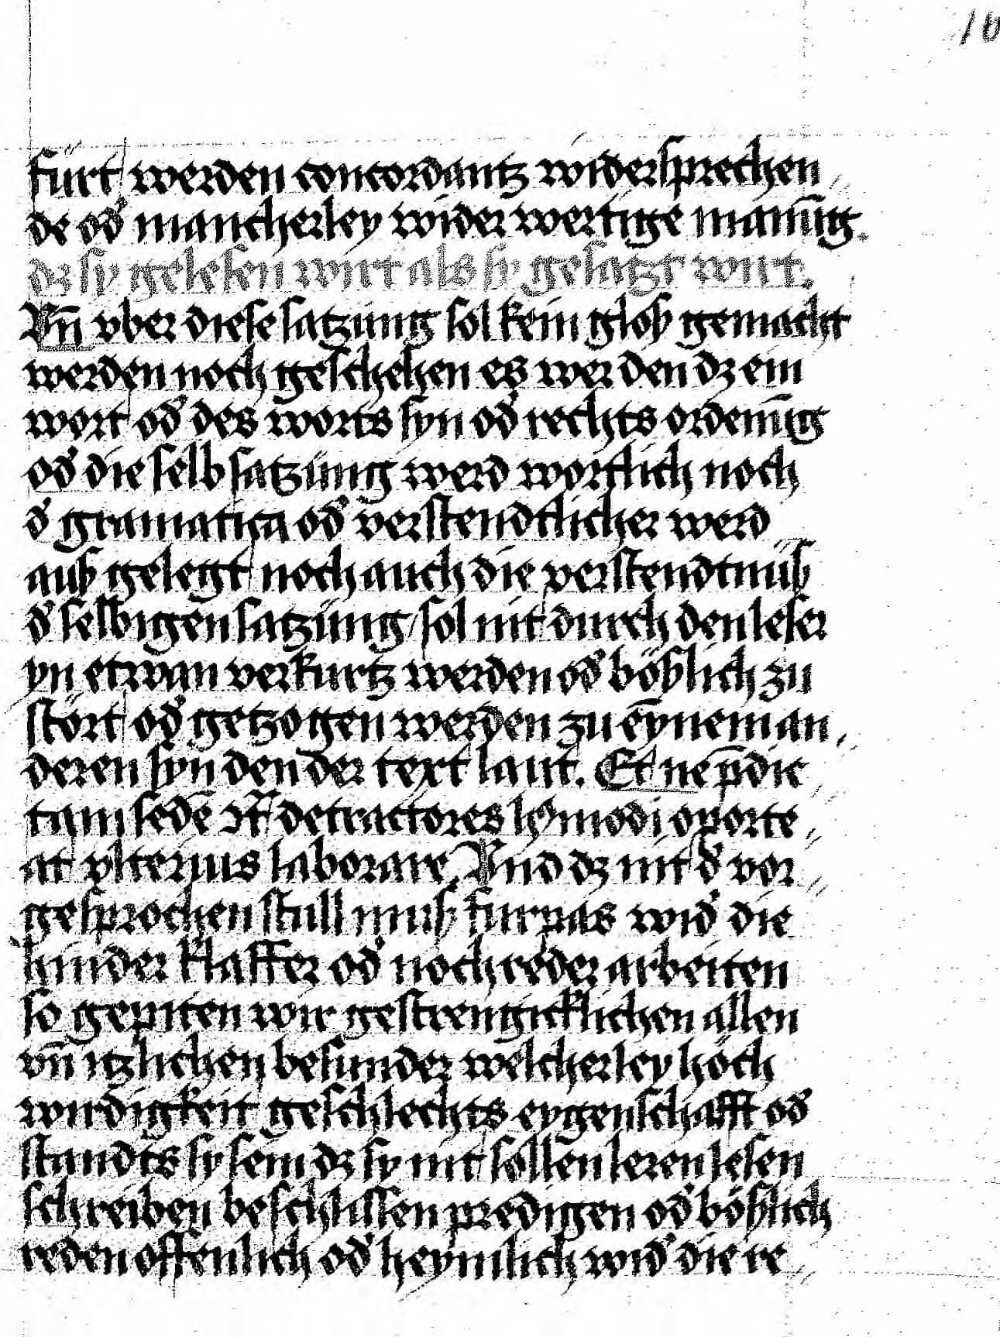 16
fürt werden concordantz widersprechen
de od̛ mancherley wider wertige mainūg.
dz sy gelesen wirt als sy gesatzt wirt.
Vn̄ vber diese satzüng sol kein gloß gemacht
werden noch geschehen es werden dz ein
wort od̛ des worts syn od̛ rechts ordenūg
od̛ die selb satzüng werd wortlich noch
d̛ gramatica od̛ verstendtlicher werd
auß gelegt noch auch die verstendtnüß
d̛ selbigen satzüng sol nit durch den leser
yn etwan verkurtz werden od̛ bößlich zu
stört od̛ getzogen werden zu eynem an
deren syn den der text laut. Et ne p̄dic
tam sedē detractores modi oporte
at vlterius laborare Vnd dz nit d̛ vor
gesprochen stull muß furpas wid̛ die
hinder klaffer od̛ noch reder arbeiten
so gepiten wir gestrengicklichen allen
vn̄ itzlichen besunder welcherley höch
wirdigkeit geschlechts eygenschafft od̛
standts sy sein dz sy nit söllen leren lesen
schreiben beschlissen predigen od̛ bößlich
reden offenlich od̛ heymlich wid̛ die re